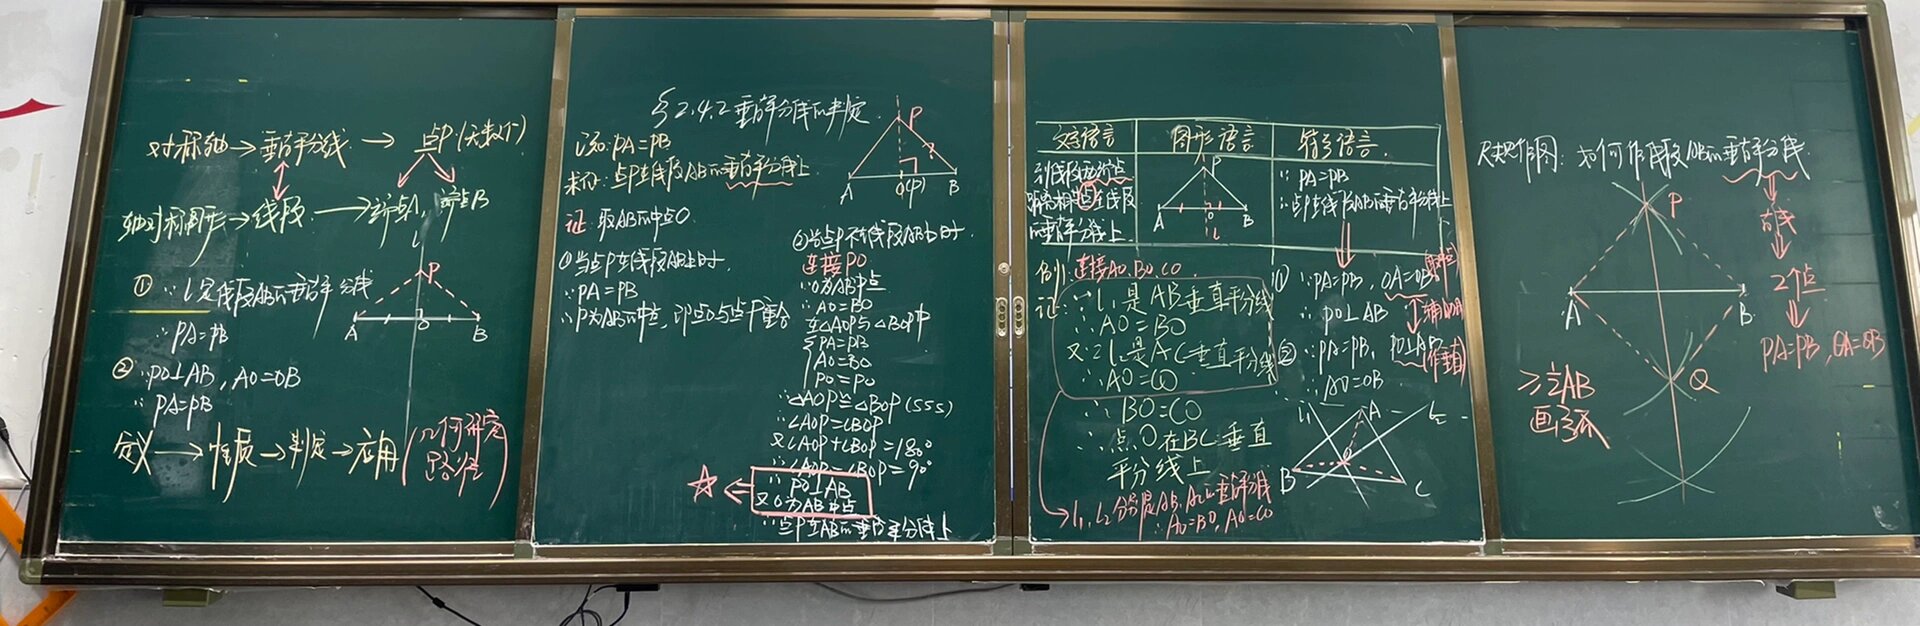 对称轴→垂直平分线→点P(无数个)
轴对称图形→线段→端点A,端点B
① ∵l是线段AB的垂直平分线
∴PA=PB
l
P
A
O
B
② ∵PO⊥AB, AO=OB
∴PA=PB
定义→性质→判定→应用(几何研究路径)
§2.4.2垂直平分线的判定
已知:PA=PB
求证:点P在线段AB的垂直平分线上
P
A
O(P)
B
证:取AB的中点O
①当点P在线段AB上时,
∵PA=PB
∴P为AB的中点,即点O与点P重合
②当点P不在线段AB上时,
连接PO
∵O为AB中点
∴AO=BO
在△AOP与△BOP中
PA=PB
AO=BO
PO=PO
∴△AOP≌△BOP(SSS)
∴∠AOP=∠BOP
又∠AOP+∠BOP=180°
∴∠AOP=∠BOP=90°
∴PO⊥AB
又O为AB中点
∴点P在AB的垂直平分线上
文字语言
图形语言
符号语言
到线段两端点
距离相等的点在线段
的垂直平分线上
P
A
O
B
l
∵PA=PB
∴点P在线段AB的垂直平分线上
例: 连接AO,BO,CO
证: ∵l₁是AB垂直平分线
∴AO=BO
又∵l₂是AC垂直平分线
∴AO=CO
∴BO=CO
∴点O在BC垂直
平分线上
l₁,l₂分别是AB,AC的垂直平分线
∴AO=BO,AO=CO
① ∵PA=PB, OA=OB(取中点)
∴PO⊥AB
辅助线
② ∵PA=PB, PO⊥AB(作垂直)
∴AO=OB
l₁
A
l₂
O
B
C
尺规作图:如何作线段AB的垂直平分线
P
A
B
Q
直线
2个点
PA=PB,QA=QB
>½AB
画弧